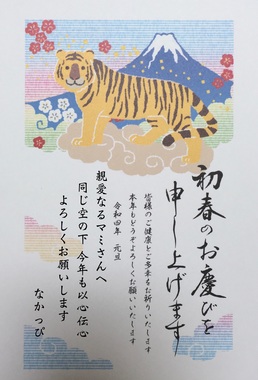 初春のお慶びを
申し上げます
皆様のご健康とご多幸をお祈りいたします
本年もどうぞよろしくお願いいたします
令和四年 元旦
親愛なるマミさんへ
同じ空の下 今年も以心伝心
よろしくお願いします
なかっぴ